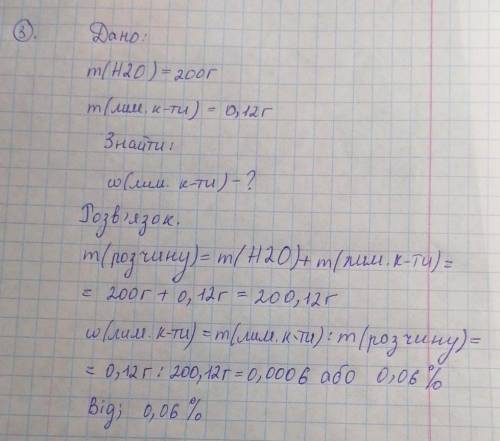 3. Дано:
m(H2O) = 200г
m(лим. к-ти) = 0,12г
Знайти:
ω(лим. к-ти) - ?
Розв'язок.
m(розчину) = m(H2O) + m(лим. к-ти) =
= 200г + 0,12г = 200,12г
ω(лим. к-ти) = m(лим. к-ти) : m(розчину) =
= 0,12г : 200,12г = 0,0006 або 0,06%
Від; 0,06%